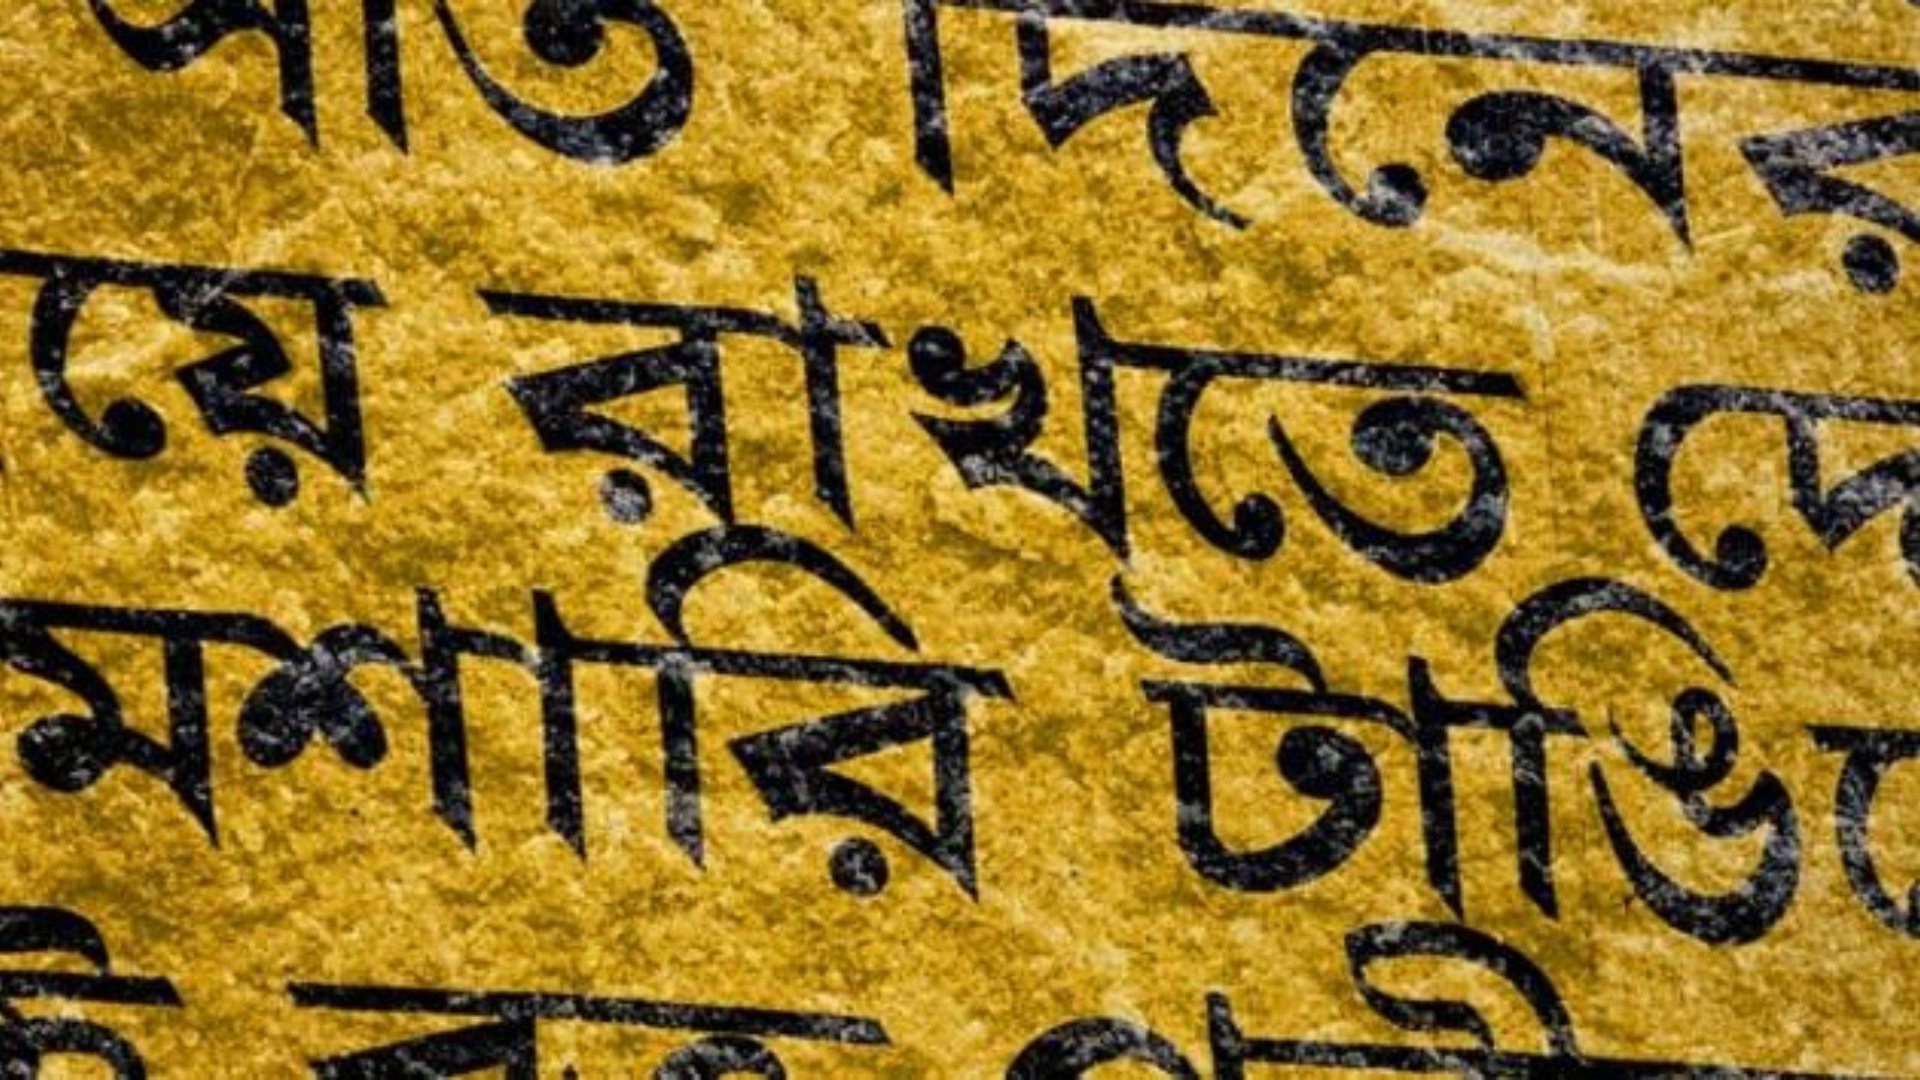 সাত দিনের
য়ে রাখতে দে
মশারি টাঙি